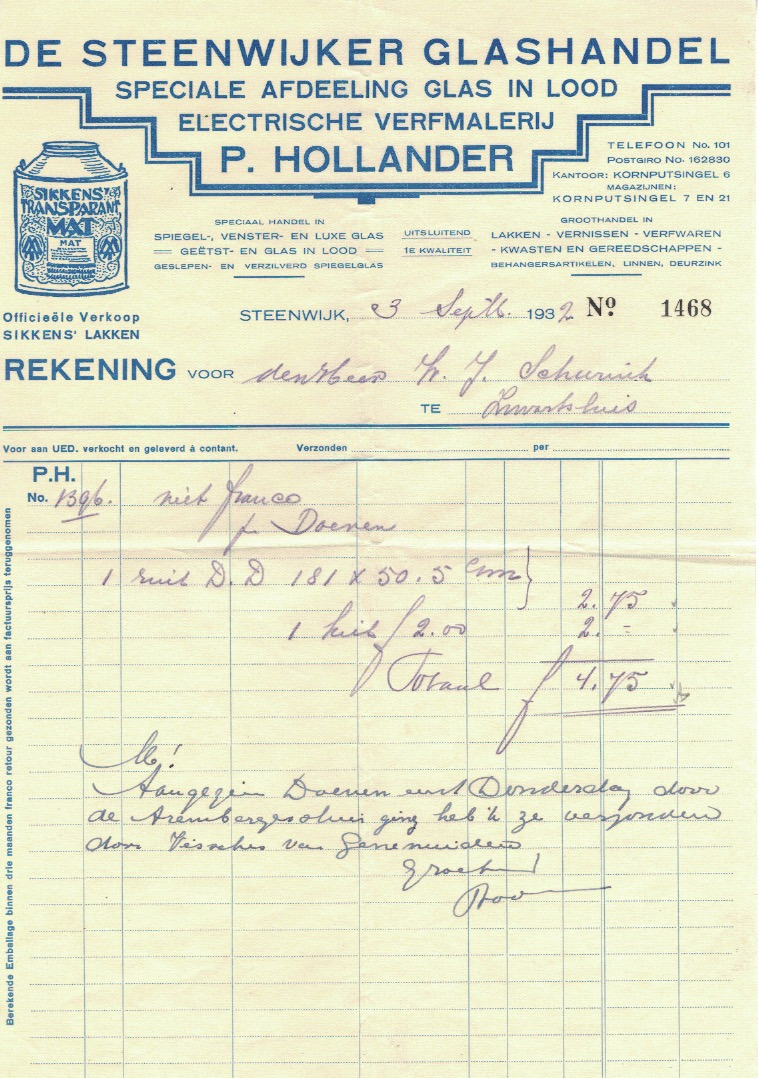 DE STEENWIJKER GLASHANDEL
SPECIALE AFDEELING GLAS IN LOOD
ELECTRISCHE VERFMALERIJ
P. HOLLANDER
TELEFOON No. 101
POSTGIRO No. 162830
KANTOOR: KORNPUTSINGEL 6
MAGAZIJNEN:
KORNPUTSINGEL 7 EN 21
SIKKENS'
TRANSPARANT
MAT
MAT
SPECIAAL HANDEL IN
SPIEGEL-, VENSTER- EN LUXE GLAS
GEËTST- EN GLAS IN LOOD
GESLEPEN- EN VERZILVERD SPIEGELGLAS
UITSLUITEND
1E KWALITEIT
GROOTHANDEL IN
LAKKEN - VERNISSEN - VERFWAREN
- KWASTEN EN GEREEDSCHAPPEN -
BEHANGERSARTIKELEN, LINNEN, DEURZINK
Officieële Verkoop
SIKKENS' LAKKEN
STEENWIJK, 3 Septb. 1932 No. 1468
REKENING VOOR den Heer W. J. Schurink
TE Zwartsluis
Voor aan UED. verkocht en geleverd à contant. Verzonden per
P.H.
No. 1396. niet franco
p. Doenen
1 ruit D.D 181 x 50.5 cm
2.75
1 kist f 2.00 2.-
Totaal f 4.75
M!
Aangezien Doenen eerst Donderdag door
de Arembergersluis ging heb ik ze verzonden
door Visscher van Genemuiden
Groetend
Berekende Emballage binnen drie maanden franco retour gezonden wordt aan factuursprijs teruggenomen